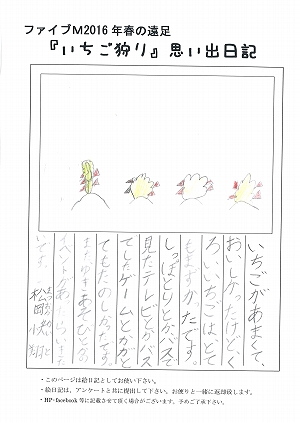 ファイブM2016年春の遠足
『いちご狩り』思い出日記
いちごがあまくて、
おいしかったけどく
ろいいちごはとて
もまずかたです。
しっぱとりとかバスで
見たテレビとかバス
でしたゲームとかがと
てもたのしかたです。
またゆきあそびとかの
イベントがあったらいきた
いです。
・このページは絵日記としてお使い下さい。
・絵日記は、アンケートと共に提出して下さい。お便りと一緒に返却致します。
・HP・facebook 等に記載させて頂く場合がございます。予めご了承下さい。